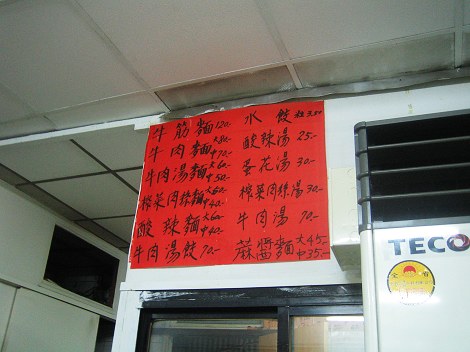 牛筋麵120.-
牛肉麵大80.-中70.-
牛肉湯麵大60.-中50.-
榨菜肉絲麵大50.-中40.-
酸辣麵大60.-中40.-
牛肉湯餃70.-
水餃
酸辣湯25.-
蛋花湯30.-
榨菜肉絲湯30.-
牛肉湯70.-
蔴醬麵大45.-中35.-
TECO